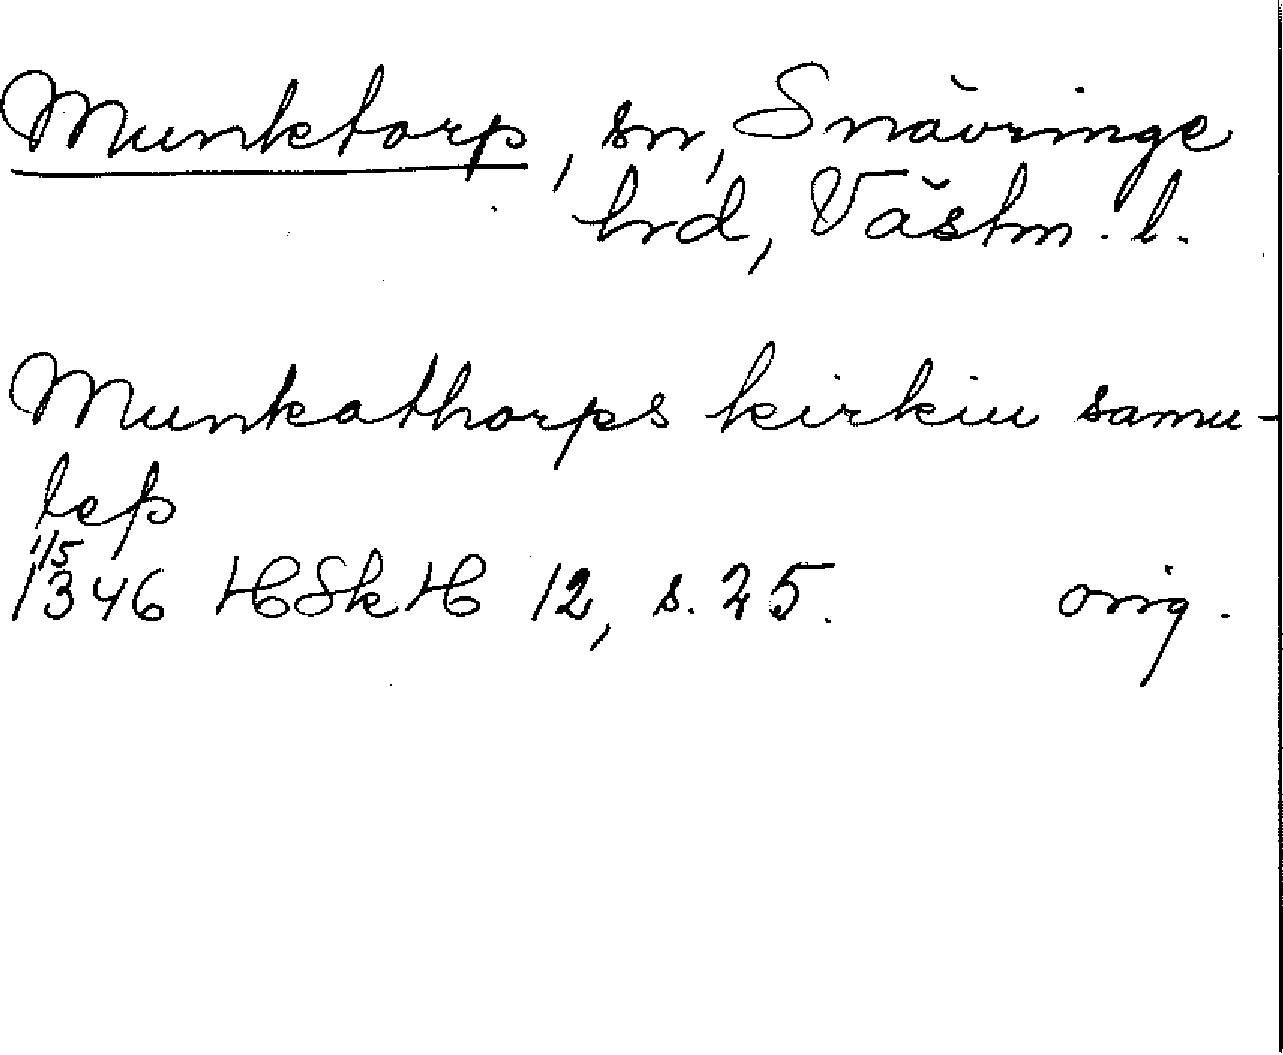 Munktorp, sn, Snävringe
hrd, Västm. l.
Munkathorps kirkiu samu-
leþ
1/5
1346 HSkH 12, s. 25. orig.